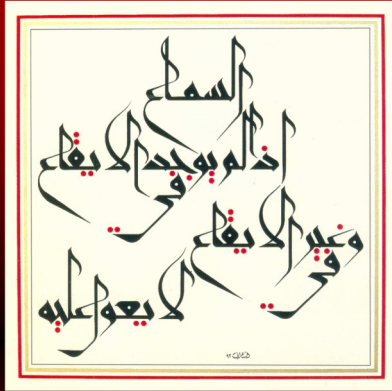 السماع
إذا لم يوجد في الايقاع
وغير الايقاع في
لا يعول عليه